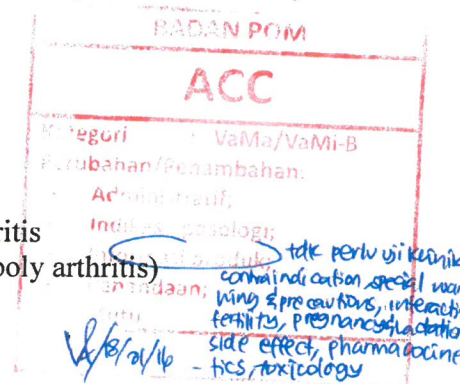 BADAN POM
ACC
Kategori : VaMa/VaMi-B
Perubahan/Penambahan:
Administratif;
Indikasi, posologi;
ritis
tdk perlu uji klinik
poly arthritis)
produk;
contraindication, special war
Penandaan;
ning & precautions, interactio
fertility, pregnancy & lactation
side effect, pharmacocine
- tics, toxicology